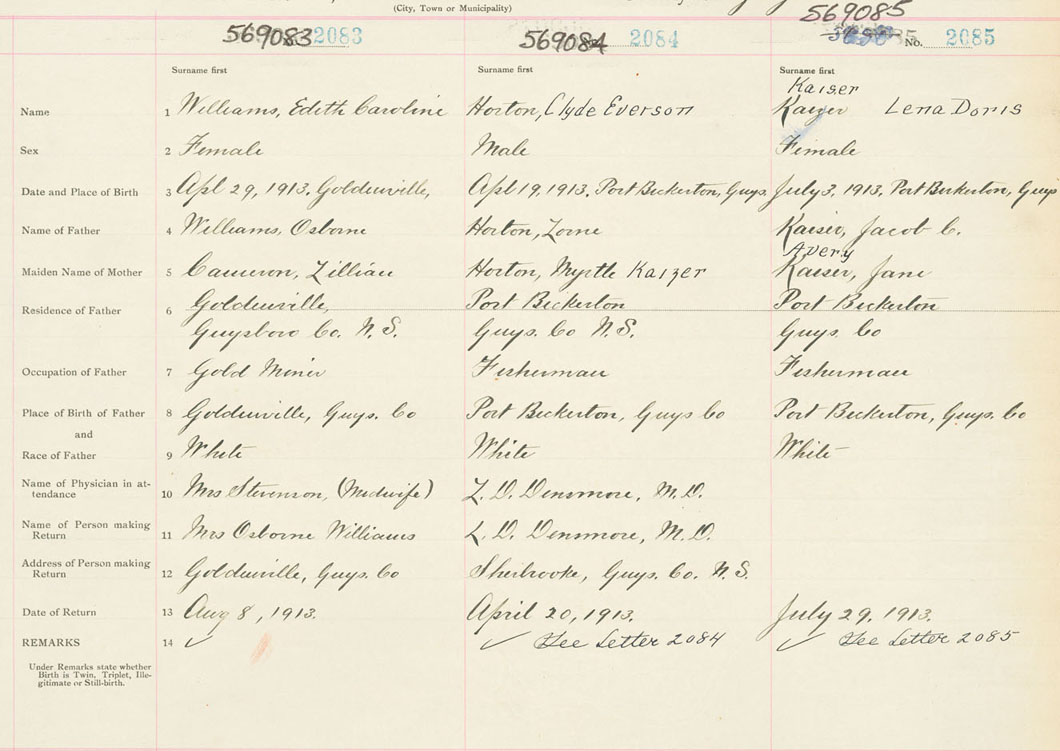 (City, Town or Municipality)
569083 2083 569084 2084 569085 No. 2085
Surname first Surname first Surname first
Kaiser
Name 1 Williams, Edith Caroline Horton, Clyde Everson Kaizer Lena Doris
Sex 2 Female Male Female
Date and Place of Birth 3 Apl 29, 1913. Goldenville, Apl 19, 1913. Port Beckerton, Guys. July 3, 1913. Port Beckerton, Guys
Name of Father 4 Williams, Osborne Horton, Lorne Kaiser, Jacob C.
Avery
Maiden Name of Mother 5 Cameron, Lillian Horton, Myrtle Kaizer Kaiser, Jane
Residence of Father 6 Goldenville, Port Beckerton Port Beckerton
Guysboro Co. N.S. Guys. Co N.S. Guys. Co
Occupation of Father 7 Gold Miner Fisherman Fisherman
Place of Birth of Father 8 Goldenville, Guys. Co Port Beckerton, Guys Co Port Beckerton, Guys. Co
and
Race of Father 9 White White White
Name of Physician in at-
tendance 10 Mrs Stevenson, (Midwife) L. D. Densmore, M.D.
Name of Person making
Return 11 Mrs Osborne Williams L. D. Densmore, M.D.
Address of Person making
Return 12 Goldenville, Guys. Co Sherbrooke, Guys. Co. N.S.
Date of Return 13 Aug 8, 1913. April 20, 1913. July 29, 1913.
REMARKS 14 ✓ ✓ See Letter 2084 ✓ See Letter 2085
Under Remarks state whether
Birth is Twin, Triplet, Ille-
gitimate or Still-birth.